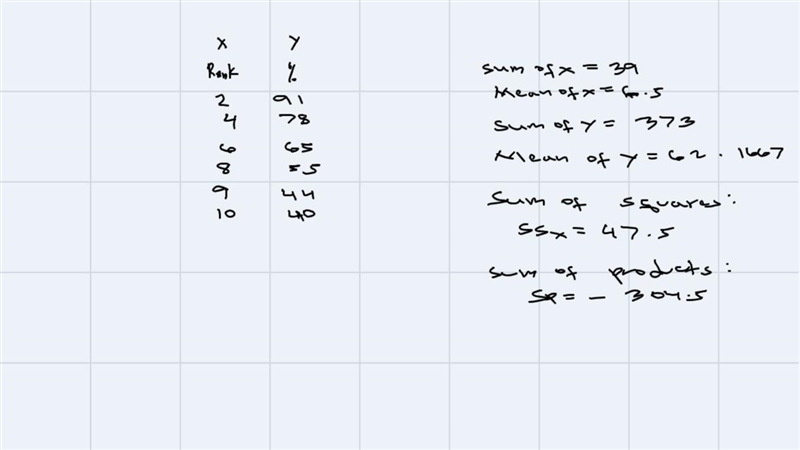 X Y
Rank %
2 91
4 78
6 65
8 55
9 44
10 40
Sum of x = 39
Mean of x = 6.5
Sum of Y = 373
Mean of Y = 62.1667
Sum of ssquares:
SSx = 47.5
sum of products:
SP = - 304.5